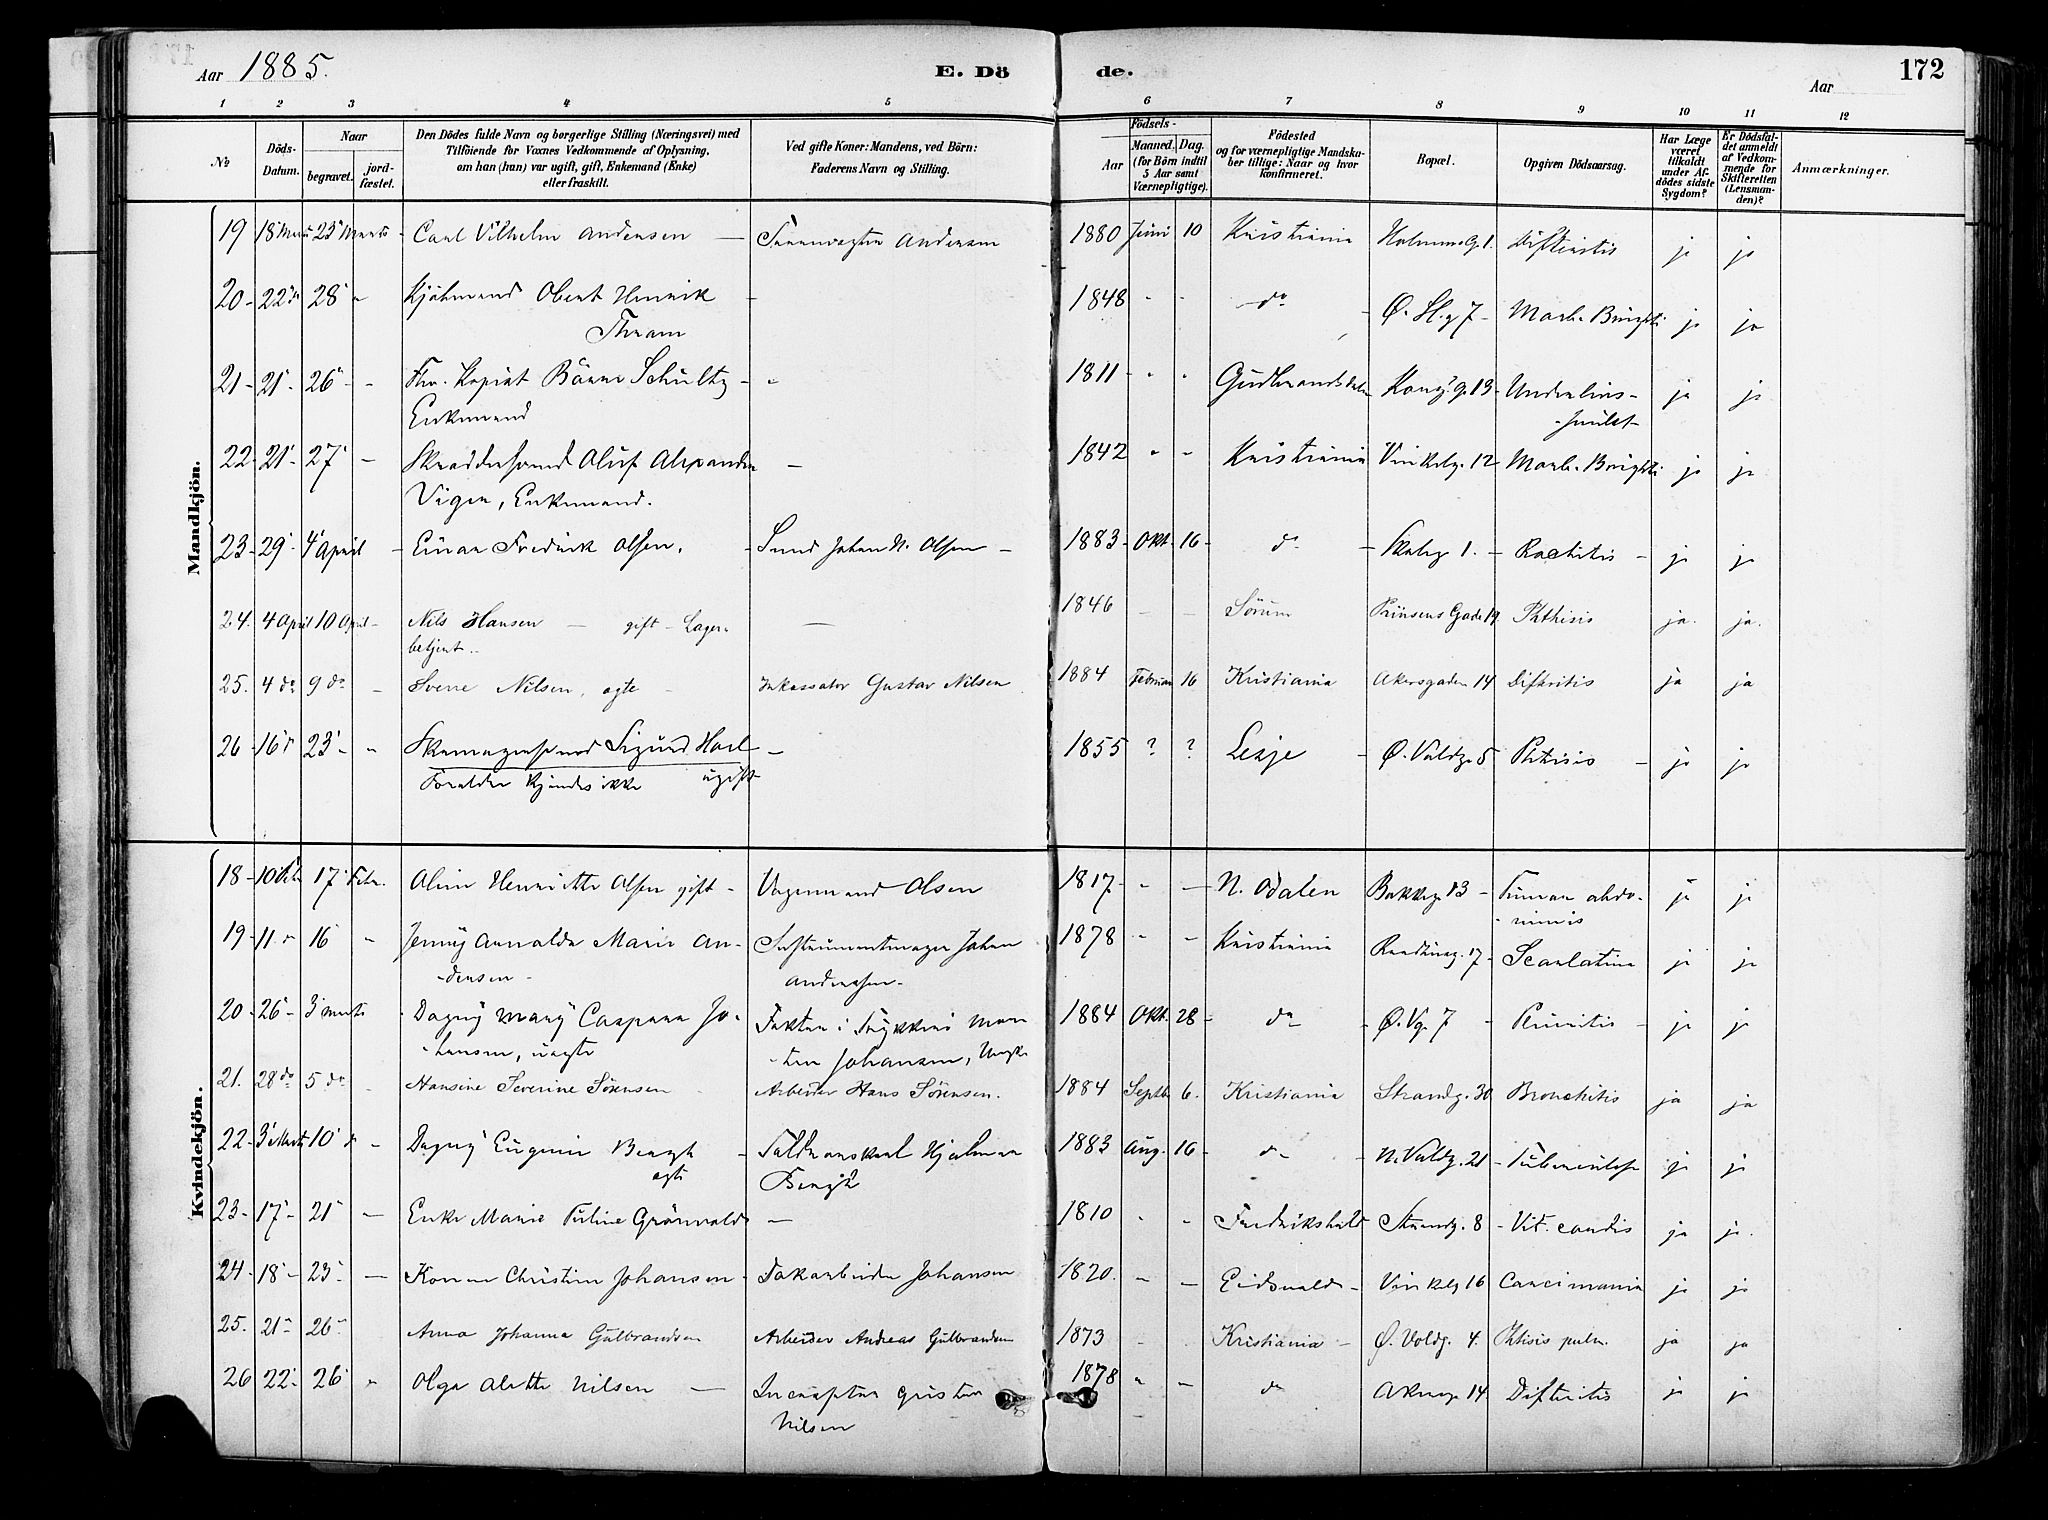 Aar 1885.
E. Dö
de.
Aar
172
1 2 3 4 5 6 7 8 9 10 11 12
No
Döds-Datum.
Naar
begravet.
jord-fæstet.
Den Dödes fulde Navn og borgerlige Stilling (Næringsvei) med
Tilföiende for Voxnes Vedkommende af Oplysning,
om han (hun) var ugift, gift, Enkemand (Enke)
eller fraskilt.
Ved gifte Koner: Mandens, ved Börn:
Faderens Navn og Stilling.
Födsels-
Aar
Maaned. Dag.
(for Börn indtil
5 Aar samt
Værnepligtige).
Födested
og for værnepligtige Mandska-
ber tillige: Naar og hvor
konfirmeret.
Bopæl.
Opgiven Dödsaarsag.
Har Læge
været
tilkaldt
under Af-
dödes sidste
Sygdom?
Er Dödsfal-
det anmeldt
af Vedkom-
mende for
Skifteretten
(Lensman-
den)?
Anmærkninger.
Mandkjön.
19 18 Marts 23 Marts - Carl Vilhelm Andersen — Andersen 1880 Juni 10 Kristiania Holmensg. 1. Difteritis ja ja
20- 22 d 28 " Obert Henrik - 1848 - - do - Ø. Sl.g 7 - Morb. Brighti ja ja
Thram
21- 21- 26 - - Fhv. Kopist Schultz - " 1811 - " " Gudbrandsdalen Kong.g. 13- Underlivs-
Enkemand
-svulst
22- 21- 27 - Skræddersvend Oluf Alexander - 1842 " - Kristiania Vinkelg. 12 Morb. Brighti ja ja
Vigen, Enkemand.
23- 29- 4 April - Einar Fredrik Olsen. - Svend Johan N. Olsen - 1883- Okt. 16- do - 1. - Rachitis - ja ja
24. 4 April 10 April - Nils Hansen — gift - Lager- — 1846 — — Sørum Prinsens Gade 19 Phthisis ja. ja.
betjent..
25. 4 do 9 do - Sverre Nilsen, ægte - Inkassator Gustav Nilsen 1884 Februar 16 Kristiania Akersgaden 14 Difteritis ja ja
26- 16 23 - " Skomagersvend Sigurd - 1855 ? ? Lesje - Ø. Voldg. 5 Phtisis - ja ja
Forældre kjendes ikke ugift
Kvindekjön.
18- 10 Feb. 17 Febr. Oline Henriette Olsen gift - Vognmand Olsen 1817- - — N. Odalen Bakkeg. 13 - Tumor abdo-
-minis ja ja
19- 11. 16 " Jenny Arnolda Marie An- Instrumentmager Johan 1878 - - Kristiania Raadhusg. 17- Scarlatina ja ja
-dersen - Andersen.
20- 26- 3 Marts - Dagny Mary Caspara Jo- Faktor i Mor- 1884 Okt. 28- do - Ø. Vg. 7 - - ja ja
-hansen, uægte -ten Johansen, Ungk
21. 28 do 5 do - Hansine Severine Sørensen Arbeider Hans Sørensen. 1884 Septb 6. Kristiania Strandg. 30 Bronchitis ja ja
22- 3 Marts 10 do - Dagny Eugenie Bergh - Hjalmar 1883 Aug. 16- do - N. Voldg. 21 - Tuberculose ja ja
ægte Bergh
23- 17- 21 — Enke Marie Pauline Grönvold — 1810 - - Fredrikshald Strandg. 8 - Vit. cordis ja ja.
24- 18- 23 — Karen Christine Johansen - Johansen 1820. - — Eidsvold - Vinkelg 16 Carcinomania ja ja
25. 21- 26- Anna Johanna Gulbrandsen Arbeider Andreas Gulbrandsen 1873 - - Kristiania - Ø. Voldg. 4. Phtisis pulm. ja ja
26 22- 26 " Olga Alette Nilsen — Gustav 1878 " - do Akersg. 14 Difteritis ja ja
Nilsen